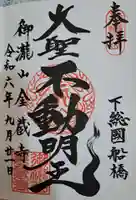 奉拝
下総國船橋
大聖不動明王
御瀧山金蔵寺
令和六年九月廿一日